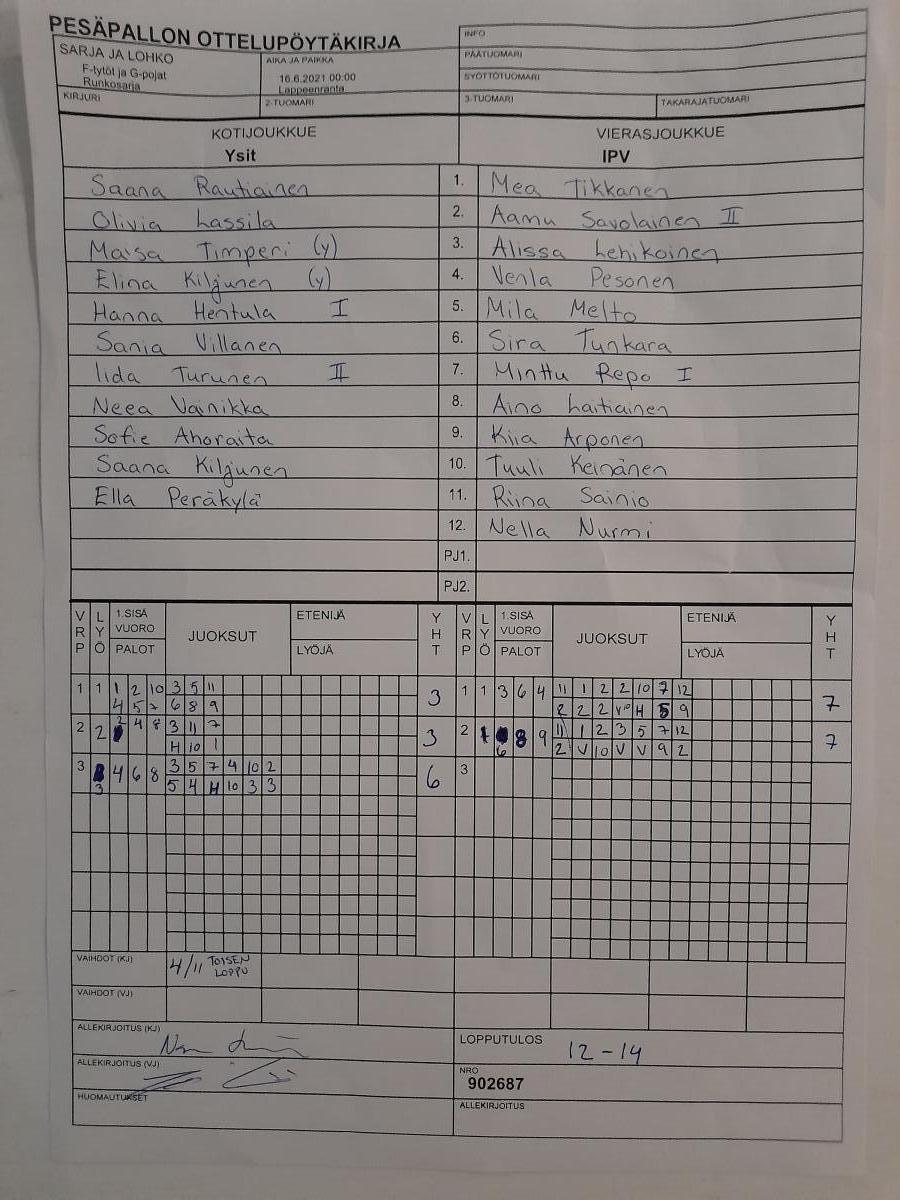 PESÄPALLON OTTELUPÖYTÄKIRJA
INFO
SARJA JA LOHKO
F-tytöt ja G-pojat
Runkosarja
AIKA JA PAIKKA
16.6.2021 00:00
Lappeenranta
PÄÄTUOMARI
SYÖTTÖTUOMARI
KIRJURI
2-TUOMARI
3-TUOMARI
TAKARAJATUOMARI
KOTIJOUKKUE
Ysit
VIERASJOUKKUE
IPV
Saana Rautiainen 1. Mea Tikkanen
Olivia Lassila 2. Aamu Savolainen II
Maisa Timperi (y) 3. Alissa Lehikoinen
Elina Kiljunen (y) 4. Venla Pesonen
Hanna Hentula I 5. Mila Melto
Sania Villanen 6. Sira Tunkara
Iida Turunen II 7. Minttu Repo I
Neea Vainikka 8. Aino Laitiainen
Sofie Ahoraita 9. Kiia Arponen
Saana Kiljunen 10. Tuuli Keinänen
Ella Peräkylä 11. Riina Sainio
12. Nella Nurmi
PJ1.
PJ2.
VRP LYÖ 1.SISÄ VUORO PALOT JUOKSUT ETENIJÄ LYÖJÄ YHT VRP LYÖ 1.SISÄ VUORO PALOT JUOKSUT ETENIJÄ LYÖJÄ YHT
1 1 1 2 10 3 5 11 3 1 1 3 6 4 11 1 2 2 10 7 12 7
4 5 7 6 8 9 2 2 2 V H 5 9
2 2 2 4 8 3 11 7 3 2 1 8 9 11 1 2 3 5 7 12 7
H 10 1 6 2 V 10 V V 9 2
3 4 6 8 3 5 7 4 10 2 6 3
3 5 4 H 10 3 3
VAIHDOT (KJ) 4/11 TOISEN
LOPPU
VAIHDOT (VJ)
ALLEKIRJOITUS (KJ)
LOPPUTULOS 12-14
ALLEKIRJOITUS (VJ)
NRO
902687
HUOMAUTUKSET
ALLEKIRJOITUS